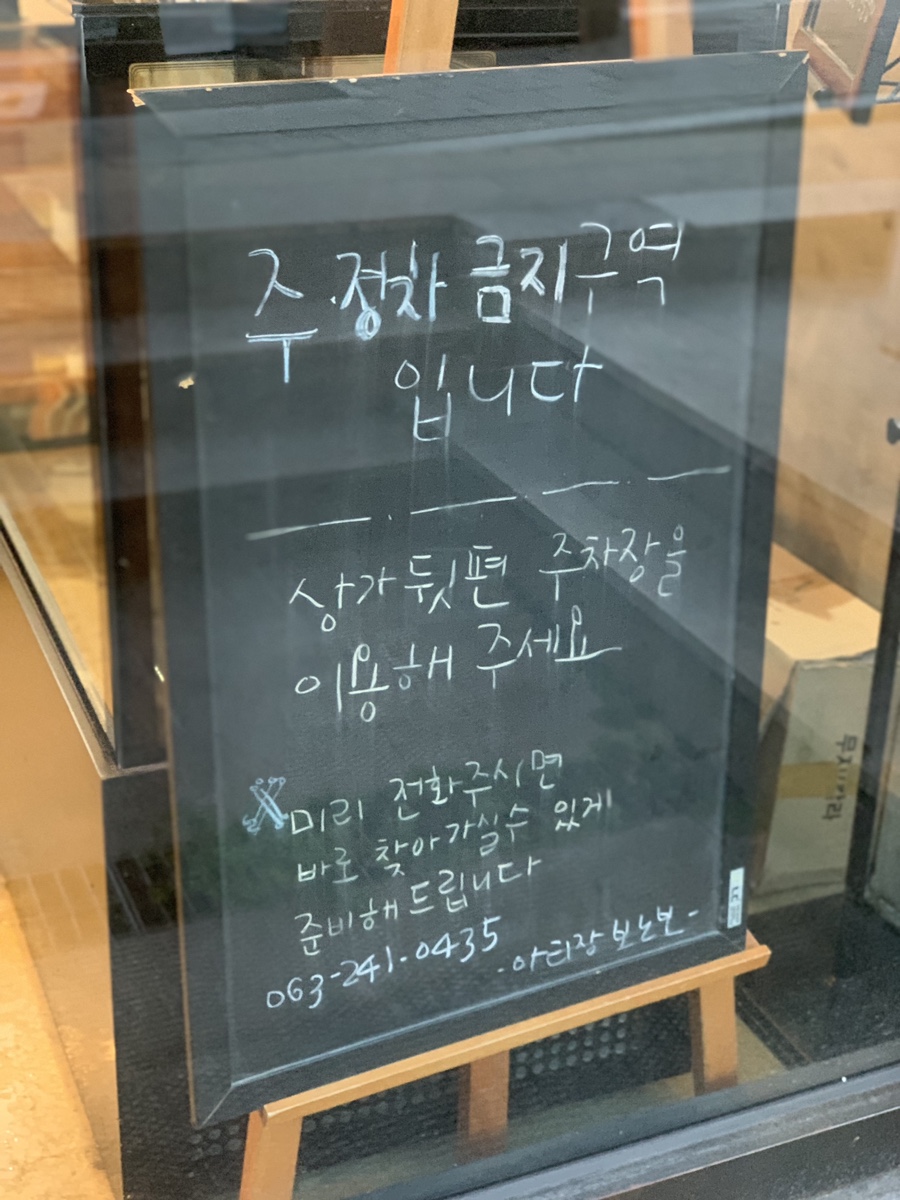 주.정차 금지구역
입니다
상가 뒷편 주차장을
이용해 주세요
※미리 전화주시면
바로 찾아가실수 있게
준비해드립니다
063-241-0435
-아티장 보노보-